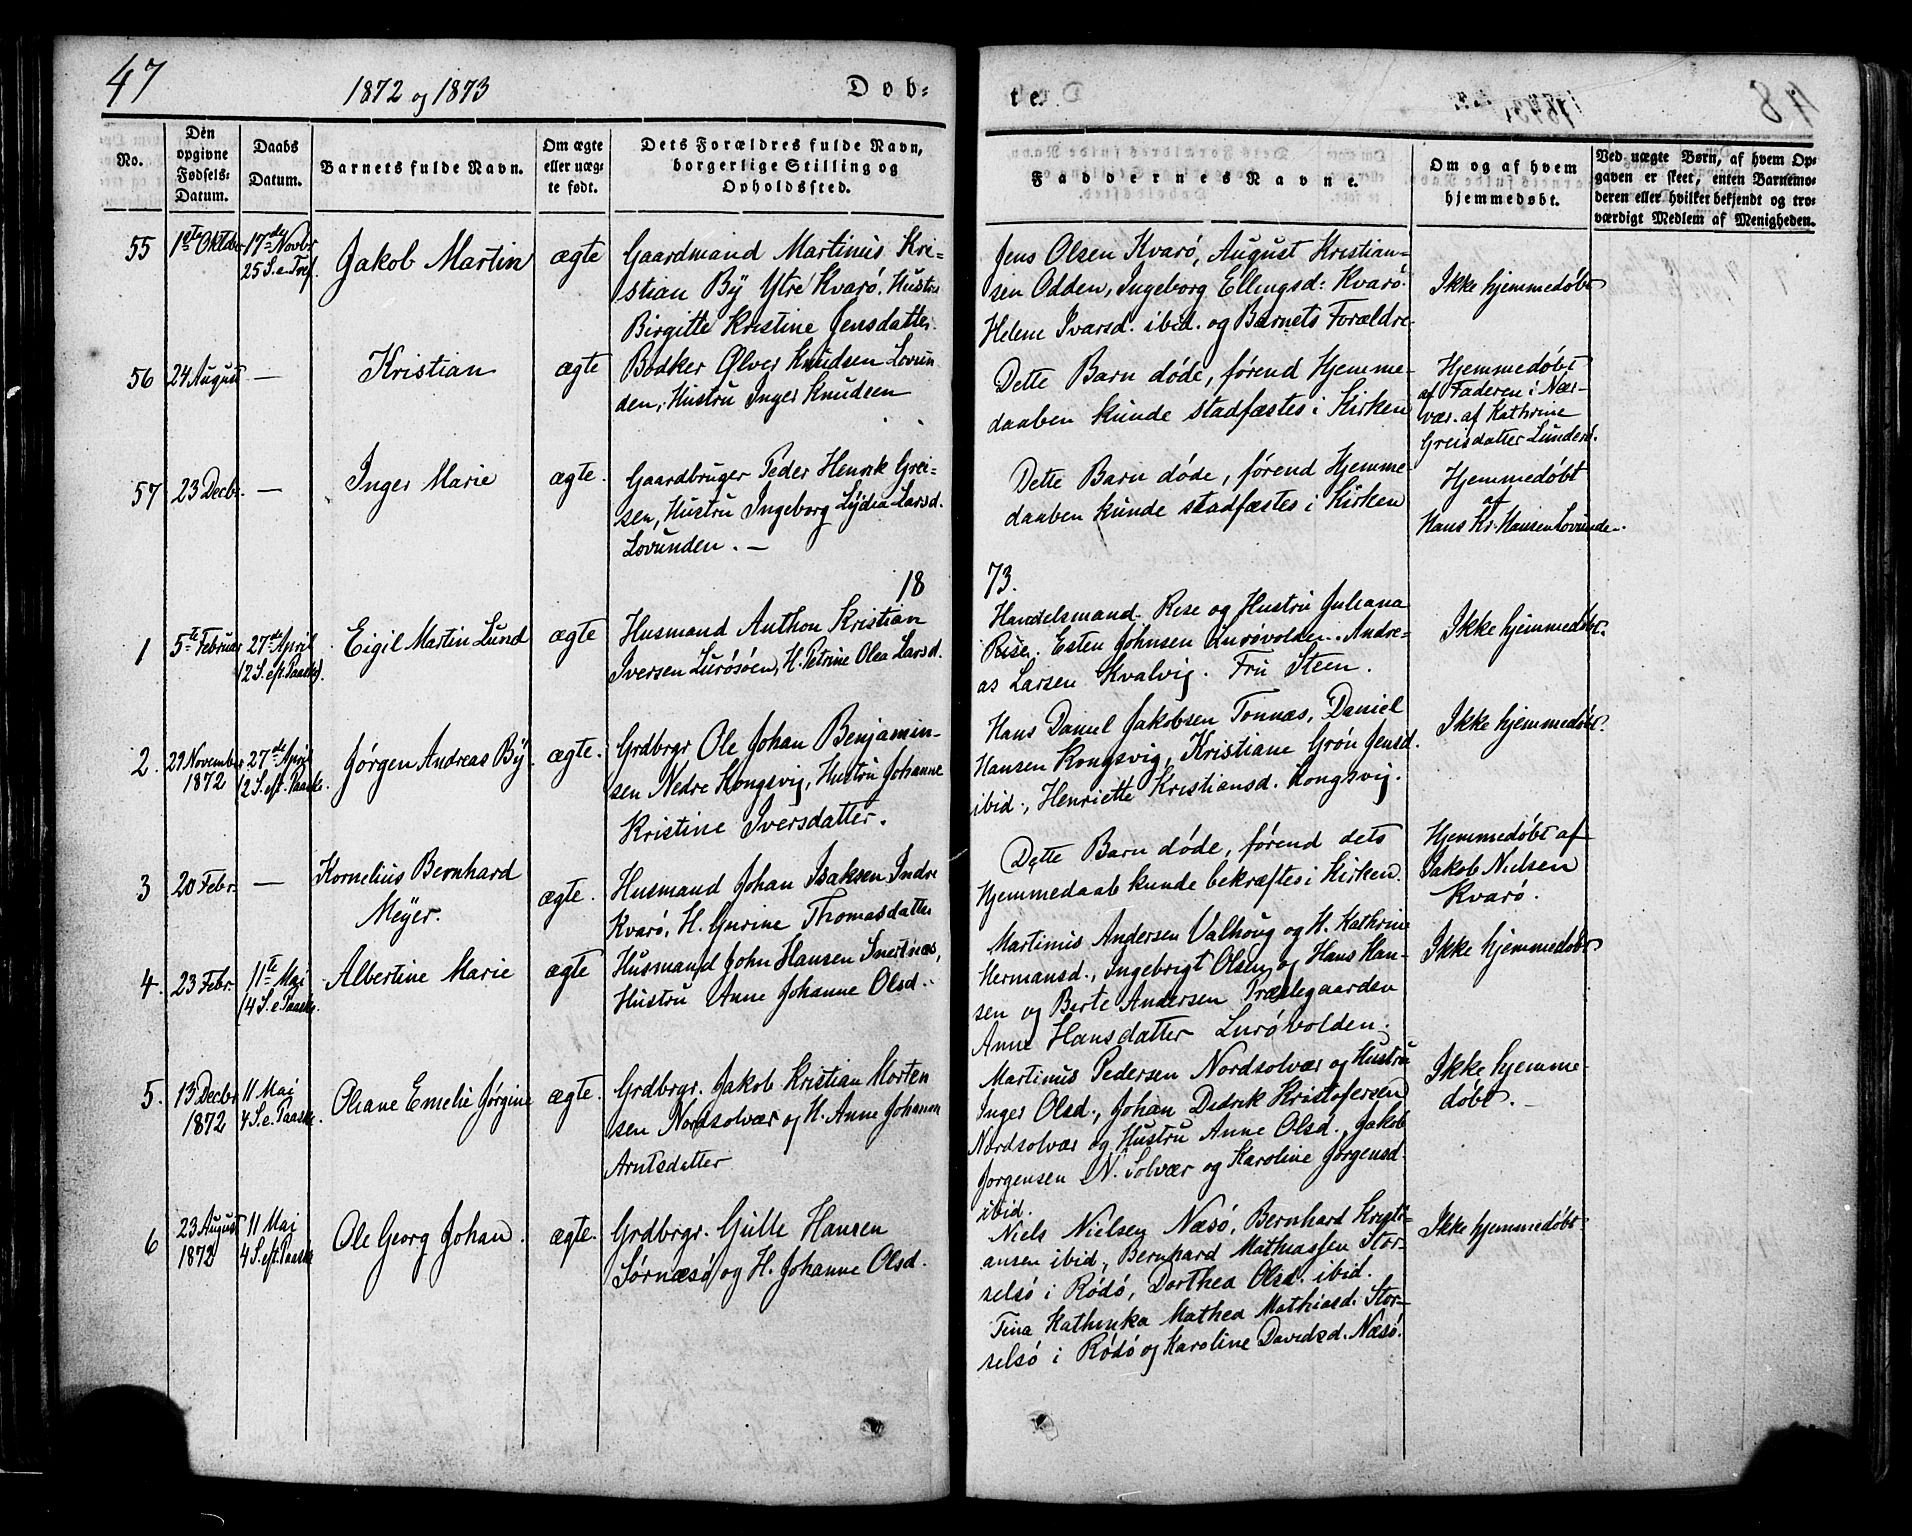 47
1872 og 1873
Døb-
te.
No.
Den opgivne Fødsels-Datum.
Daabs Datum.
Barnets fulde Navn.
Om ægte eller uægte født.
Dets Forældres fulde Navn, borgerlige Stilling og Opholdssted.
Faddernes Navne.
Om og af hvem hjemmedøbt.
Ved uægte Børn, af hvem Opgaven er skeet, enten Barnemoderen eller hvilket bekjendt og troværdigt Medlem af Menigheden.
55
1ste Oktober
17de Novbr
25 S. e. Tref.
Jakob Martin
ægte
Gaardmand Martinus Kri-
stian By Ytre Kvarø, Hustru
Birgitte Kristine Jensdatter.
Jens Olsen Kvarø, August Kristian-
sen Odden, Ingeborg Ellingsd: Kvarø
Helene Ivarsd. ibid. og Barnets Forældre
Ikke hjemmedøbt
56
24 August
—
Kristian
ægte
Bødker Ølver Knudsen Lovun
den, Hustru Inger Knudsen
Dette Barn døde, førend Hjemme-
daaben kunde stadfæstes i Kirken
Hjemmedøbt
af Faderen i Nær-
vær. af Kathrine
Greisdatter Lunderø.
57
23 Decbr.
—
Inger Marie
ægte.
Gaardbruger Peder Henrik Grei-
sen, Hustru Ingeborg Lydia Larsd.
Lovunden. —
Dette Barn døde, førend Hjemme-
daaben kunde stadfæstes i Kirken
Hjemmedøbt
af
Hans Kr. Hansen Lovunde.
18
73.
1
5te Februar
27de April
(2 S. eft. Paaske).
Eigil Martin Lund
ægte
Husmand Anthon Kristian
Iversen Lurøsøen, H. Petrine Olea Larsd.
Handelsmand Rise og Hustru Juliana
Rise. Esten Johnsen Lurøvolden. Andre-
as Larsen Kvalvig. Fru Steen.
Ikke hjemmedøbt.
2.
29 November
1872
27de April
(2 S. eft. Paaske.
Jørgen Andreas By
ægte.
Grdbrgr Ole Johan Benjamin-
sen Nedre Kongsvig, Hustru Johanne
Kristine Iversdatter.
Hans Daniel Jakobsen Tonnæs, Daniel
Hansen Kongsvig, Kristiane Grøn Jensd.
ibid., Henriette Kristiansd. Kongsvig.
Ikke hjemmedøbt.
3
20 Febr.
—
Kornelius Bernhard
Meyer.
ægte.
Husmand Johan Isaksen Indre
Kvarø, H. Gurine Thomasdatter
Dette Barn døde, førend dets
Hjemmedaab kunde bekræftes i Kirken.
Hjemmedøbt af
Jakob Nielsen
Kvarø.
4.
23 Febr.
11te Mai
(4 S. e. Paaske.
Albertine Marie
ægte
Husmand John Hansen Snertnæs,
Hustru Anne Johanne Olsd.
Martinus Andersen Valhoug og H. Kathrine
Hermansd., Ingebrigt Olsen og Hans Han-
sen og Berte Andersen Præstegaarden
Anne Hansdatter Lurøvolden.
Ikke hjemmedøbt
5.
13 Decbr
1872
11 Mai
4 S. e. Paaske.
Oliane Emelie Jørgine
ægte.
Grdbrgr. Jakob Kristian Morten
sen Nordsolvær og H. Anne Johanna
Arntsdatter
Martinus Pedersen Nordsolvær og Hustru
Inger Olsd., Johan Dedrik Kristofersen
Nordsolvær og Hustru Anne Olsd. Jakob
Jørgensen N. Solvær og Karoline Jørgensd.
ibid.
Ikke hjemme-
døbt. —
6
23 August
1872
11 Mai
4 S. eft. Paaske
Ole Georg Johan.
ægte.
Grdbrgr. Gulle Hansen
Sørnæsø og H. Johanne Olsd.
Niels Nielsen Næsø, Bernhard Kristi-
ansen ibid, Bernhard Mathiassen Stor-
selsø i Rødø, Dorthea Olsd. ibid.
Tina Kathinka Mathea Mathiasd. Stor-
selsø i Rødø og Karoline Davidsd. Næsø.
Ikke hjemmedøbt